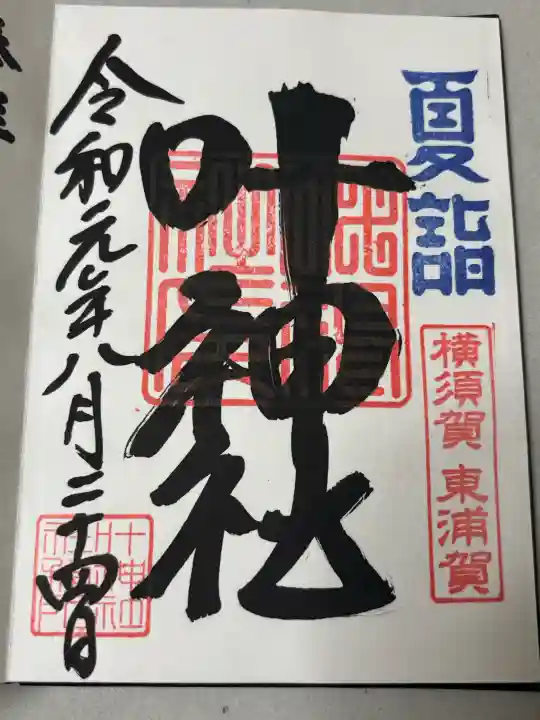 夏詣
横須賀 東浦賀
叶神社
令和元年八月二十四日